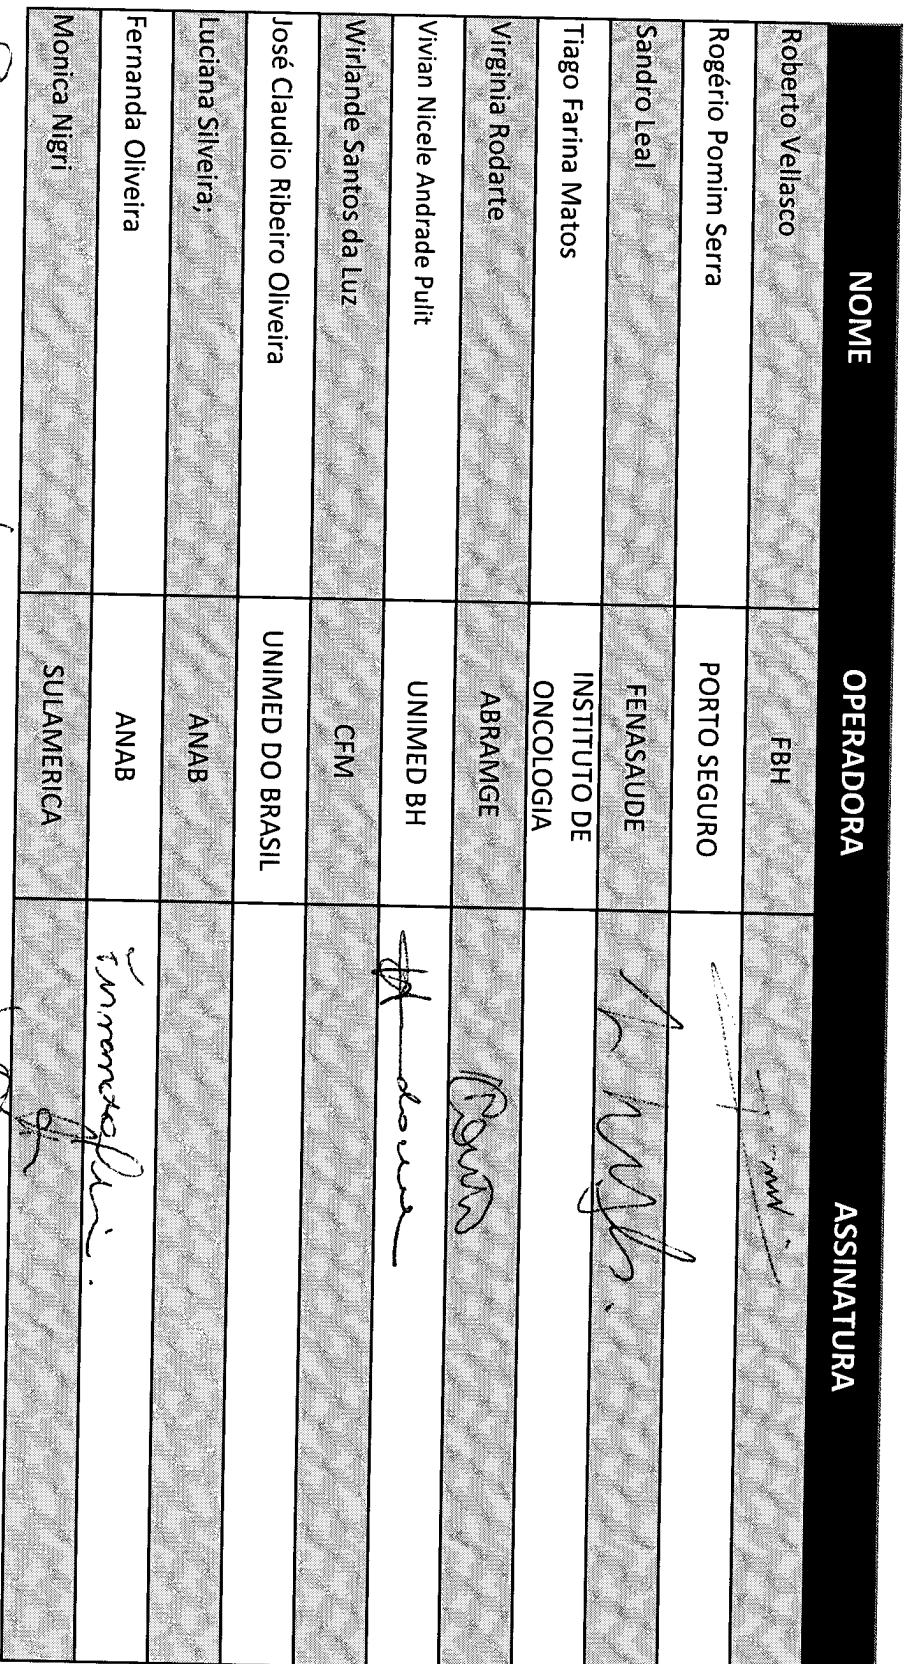 NOME OPERADORA ASSINATURA
Roberto Vellasco FBH
Rogério Pomim Serra PORTO SEGURO
Sandro Leal FENASAUDE
Tiago Farina Matos INSTITUTO DE
ONCOLOGIA
Virginia Rodarte ABRAMGE
Vivian Nicele Andrade Pulit UNIMED BH
Wirlande Santos da Luz CFM
José Claudio Ribeiro Oliveira UNIMED DO BRASIL
Luciana Silveira; ANAB
Fernanda Oliveira ANAB
Monica Nigri SULAMERICA